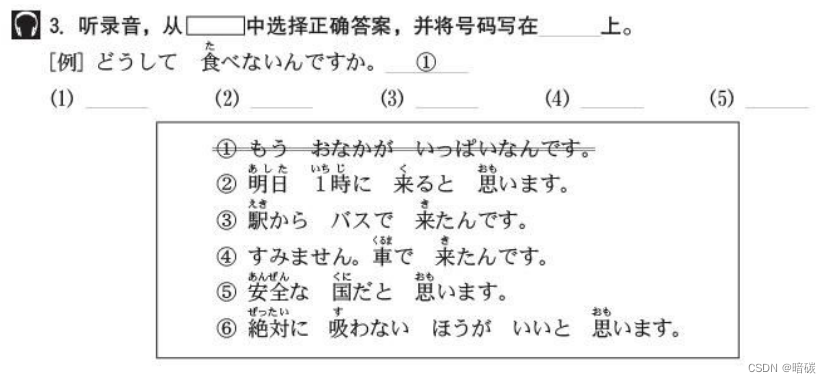 3. 听录音，从中选择正确答案，并将号码写在______上。
[例] どうして 食べないんですか。 ①
(1) ______ (2) ______ (3) ______ (4) ______ (5) ______
① もう おなかが いっぱいなんです。
② 明日 1時に 来ると 思います。
③ 駅から バスで 来たんです。
④ すみません。車で 来たんです。
⑤ 安全な 国だと 思います。
⑥ 絶対に 吸わない ほうが いいと 思います。
CSDN @暗碳